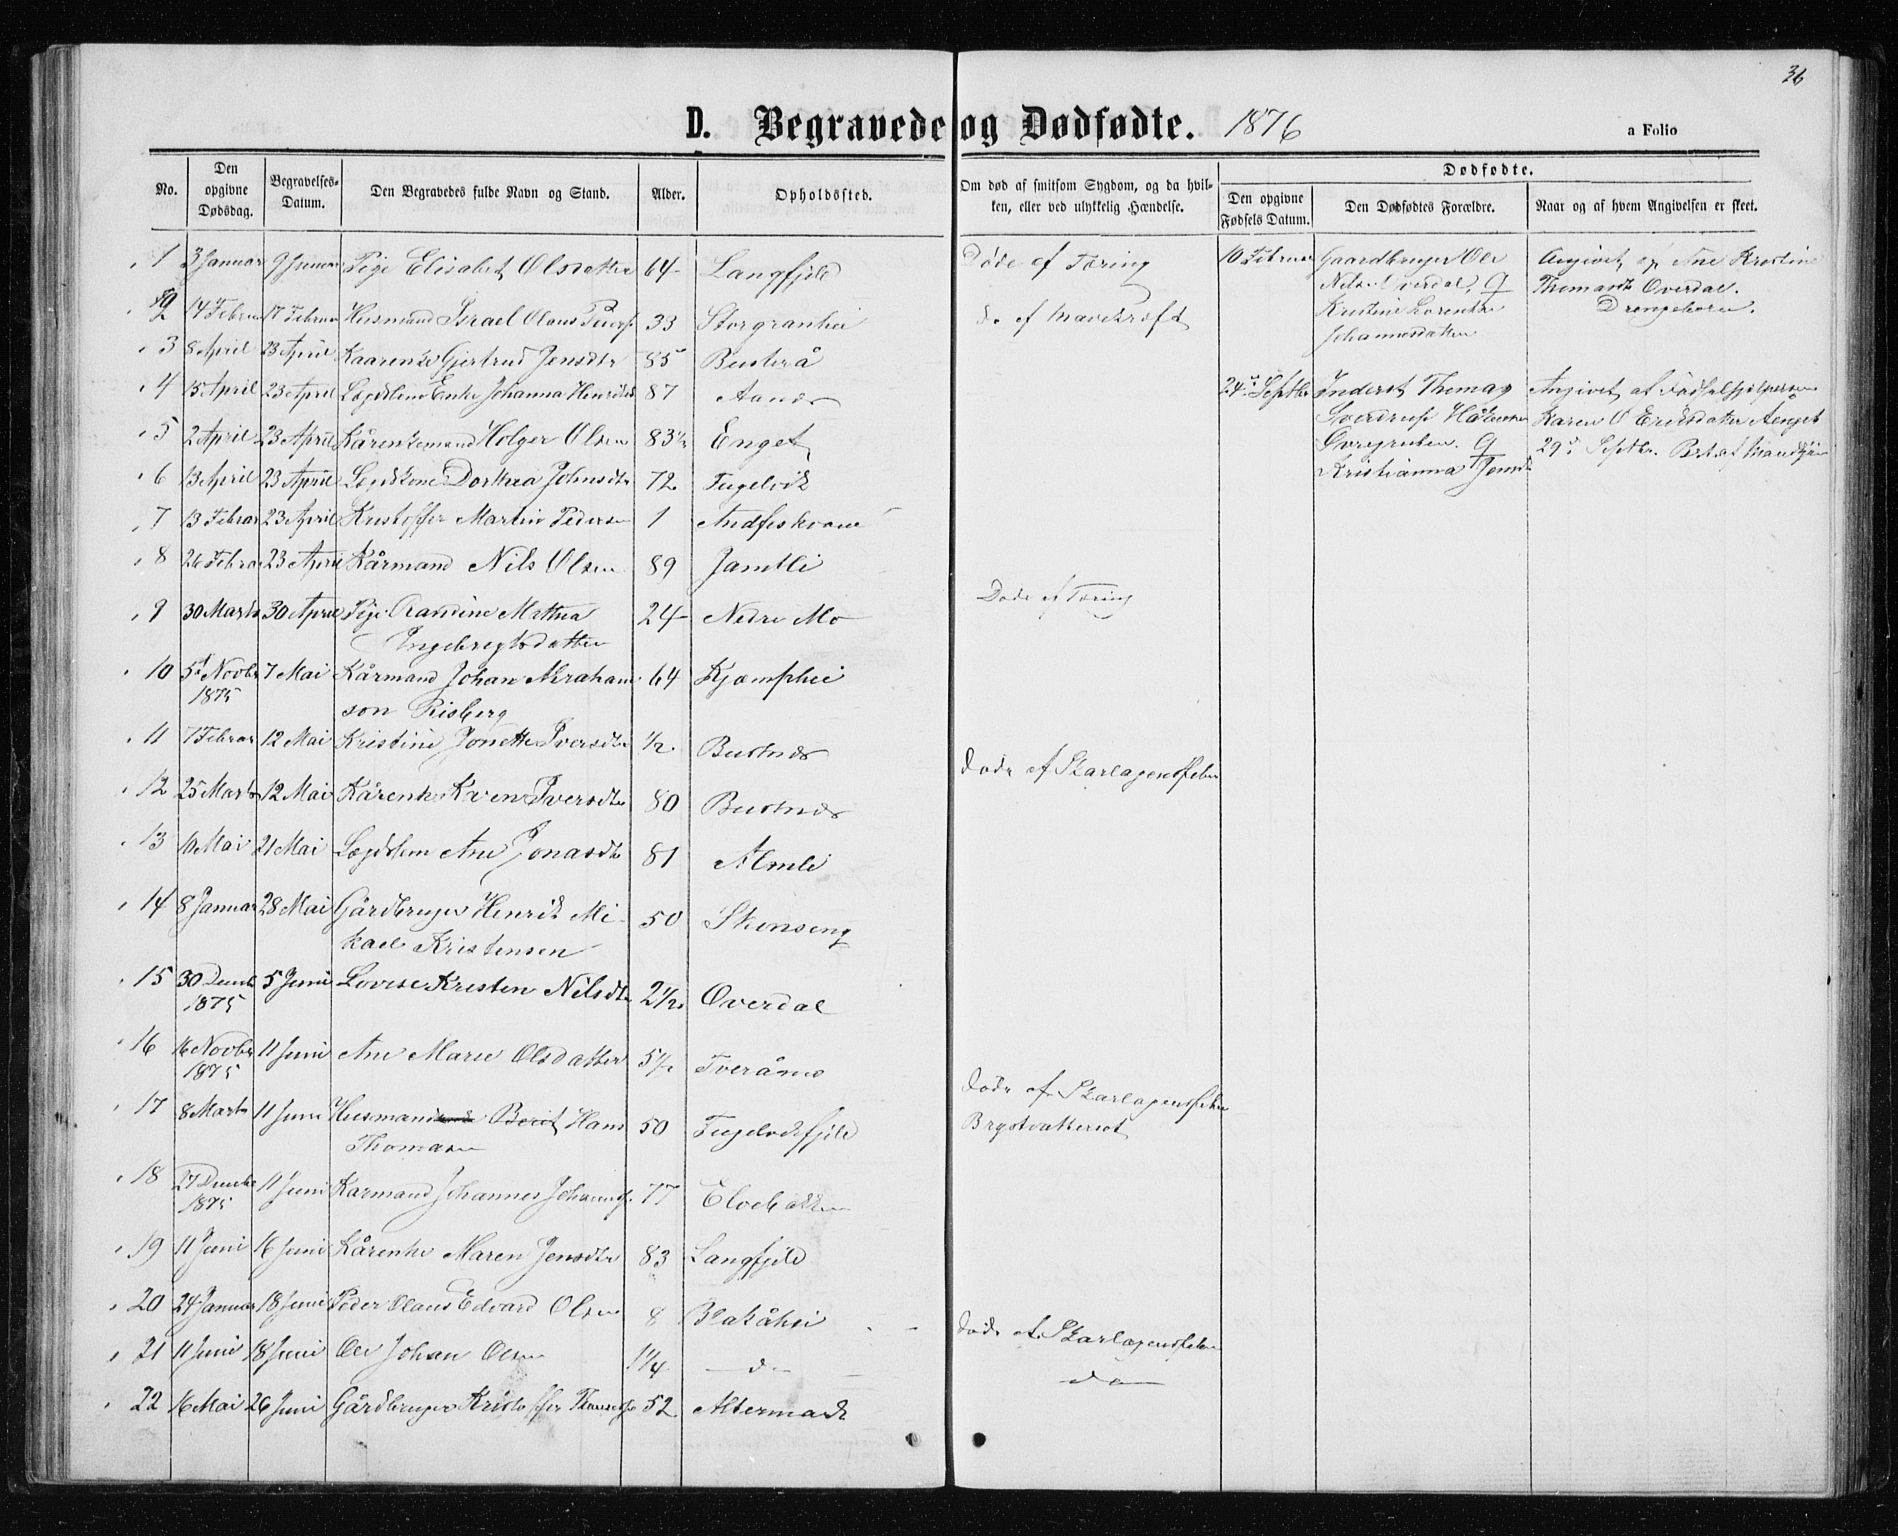 36
D. Begravede og Dødfødte. 1876
a Folio
No.
Den opgivne Dødsdag.
Begravelses-Datum.
Den Begravedes fulde Navn og Stand.
Alder.
Opholdssted.
Om død af smitsom Sygdom, og da hvil-
ken, eller ved ulykkelig Hændelse.
Dødfødte.
Den opgivne Fødsels Datum.
Den Dødfødtes Forældre.
Naar og af hvem Angivelsen er skeet.
1 3 Januar 9 Januar Pige Elisabet Olsdatter 64 Langfjeld Døde af Tæring
2 14 Februar 17 Februar Husmand Israel Olaus 33 Storgranhei do af Mavekræft
3 8 April 23 April Kaarenke Gjertrud Jensdtr 85 Busterå
4 15 April 23 April Enke Johanna 87
5 2 April 23 April Kårenkemand Holger Olsen 83½ Enget
6 13 April 23 April Dorthea Johnsdtr 72 Fugelvik
7 13 Februar 23 April Kristoffer Martin Pedersen 1 Andfiskvane
8 26 Februar 23 April Kårmand Nils Olsen 89 Jamtli
9 30 Marts 30 April Pige Randine Mathea 24 Nedre Mo Døde af Tæring
Ingebregtsdatter
10 5t Novbr 7 Mai Kårmand Johan Abraham 64 Kjæmphei
1875 son Risberg
11 7 Februar 12 Mai Kristine Jonette Iversdtr ½ Bustnes Døde af Skarlagensfeber
12 25 Marts 12 Mai Kårenke Karen Iversdtr 80 Bustnes
13 10 Mai 21 Mai Lægdslem Ane Jonasdtr 81 Almli
14 8 Januar 28 Mai Gårdbruger Henrik Mi- 50 Skonseng
kael Kristensen
15 30 Decmbr 5 Juni Lovise Kristen Nilsdtr 2½ Overdal
1875
16 16 Novbr 11 Juni Ane Marie Olsdatter 5½ Tveråmo Døde af Skarlagensfeber
1875
17 8 Marts 11 Juni Husmand Berit Hans 50 Fugelviksfjeld Brystvattersot
Thomasen
18 27 Decmbr 11 Juni Karmand Johannes 77 Elvebakken
1875
19 11 Juni 16 Juni Kårenke Maren Jensdtr 83 Langfjeld
20 24 Januar 18 Juni Peder Olaus Edvard Olsen 8 Blakåhei Døde af Skarlagensfeber
21 11 Juni 18 Juni Ole Johan Olsen 1¼ do do
22 16 Mai 26 Juni Gårdbruger Kristoffer 52 Altermark
10 Februar Gaardbruger Ole Angivet af Ane Kristine
Nilsen Overdal, og Thomasdtr Overdal.
Kristine Lorentze Drengebarn.
Johannesdatter
24de Septbr Inderst Thomas Angivet af Fødselshjelpersen
Sverdrup Karen O Eriksdatter Aenget
og 29de Septbr. af Mandkjøn
Kristianna